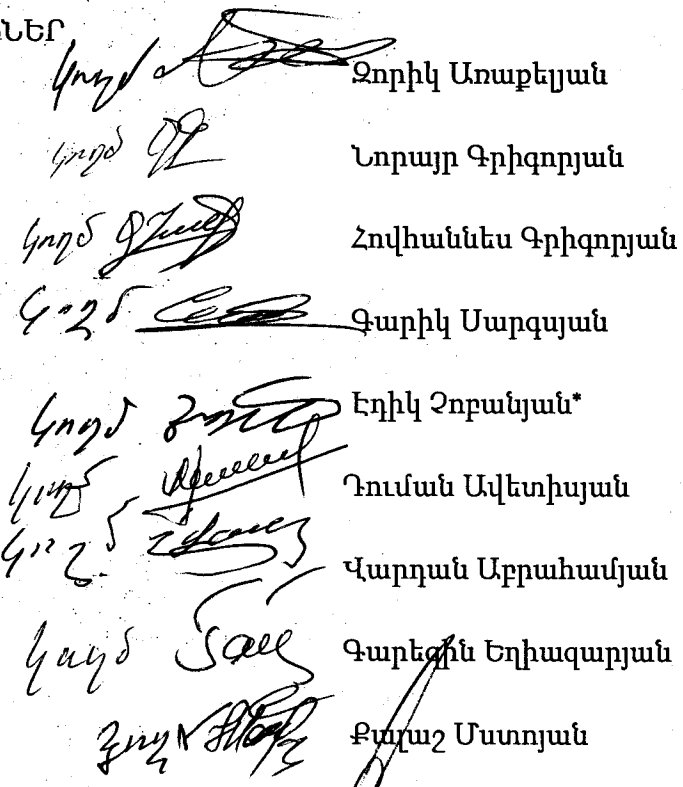 ՆԵՐ
կողմ Զորիկ Առաքելյան
կողմ Նորայր Գրիգորյան
կողմ Հովհաննես Գրիգորյան
կողմ Գարիկ Սարգսյան
կողմ Էդիկ Չոբանյան*
կողմ Դուման Ավետիսյան
կողմ Վարդան Աբրահամյան
կողմ Գարեգին Եղիազարյան
Քալաշ Մստոյան